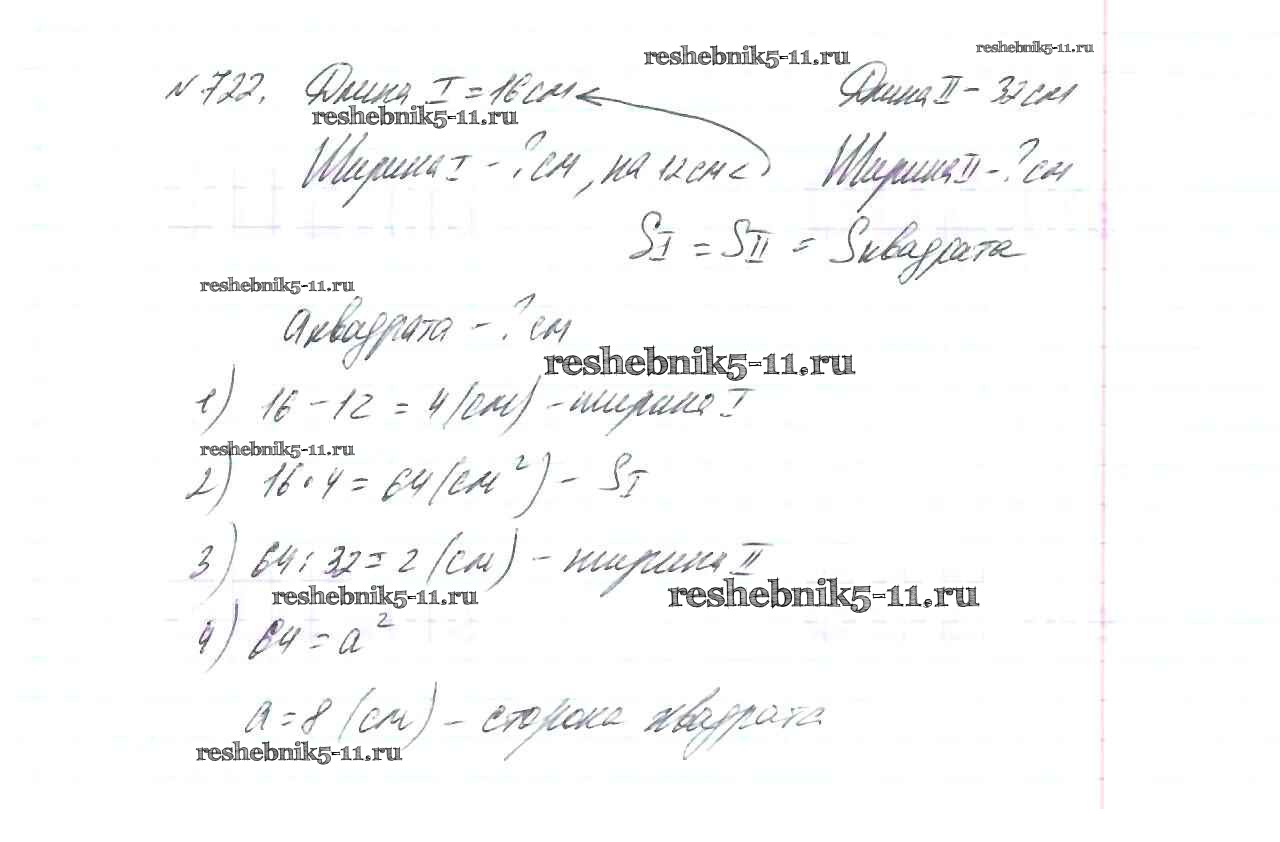 reshebnik5-11.ru reshebnik5-11.ru
№722. Длина I = 16 см Длина II - 32 см
reshebnik5-11.ru
Ширина I - ? см, на 12 см < Ширина II - ? см
SI = SII = Sквадрата
reshebnik5-11.ru
aквадрата - ? см
reshebnik5-11.ru
1) 16 - 12 = 4 (см) - ширина I
reshebnik5-11.ru
2) 16 · 4 = 64 (см²) - SI
3) 64 : 32 = 2 (см) - ширина II
reshebnik5-11.ru reshebnik5-11.ru
4) 64 = a²
a = 8 (см) - сторона квадрата
reshebnik5-11.ru